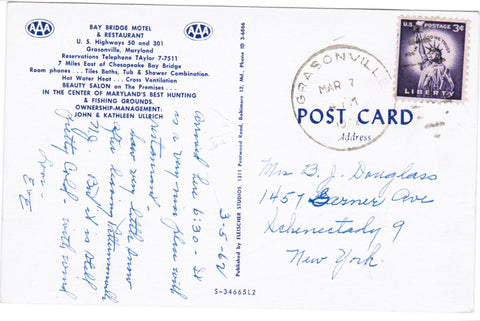 AAA
BAY BRIDGE MOTEL
& RESTAURANT
U. S. Highways 50 and 301
Grasonville, Maryland
Reservations Telephone TAylor 7-7511
7 Miles East of Chesapeake Bay Bridge
Room phones . . . Tiles Baths, Tub & Shower Combination.
Hot Water Heat . . . Cross Ventilation
BEAUTY SALON on The Premises . . .
IN THE CENTER OF MARYLAND'S BEST HUNTING
& FISHING GROUNDS.
OWNERSHIP-MANAGEMENT:
JOHN & KATHLEEN ULLRICH
AAA
3-5-62
Arrived here 6:30 - It
is a very nice place with
restaurant
Saw very little snow
after leaving
N.Y. But it is still
pretty cold - with wind
Love -
Eve
Published by FLEISCHER STUDIOS, 1311 Pentwood Road, Baltimore 12, Md., Phone ID 3-6866
S-34665L2
GRASONVILLE
MAR 7
U.S. POSTAGE 3¢
LIBERTY
POST CARD
Address
Mrs B. J. Douglass
1457 Gerner Ave
Schenectady 9
New York.